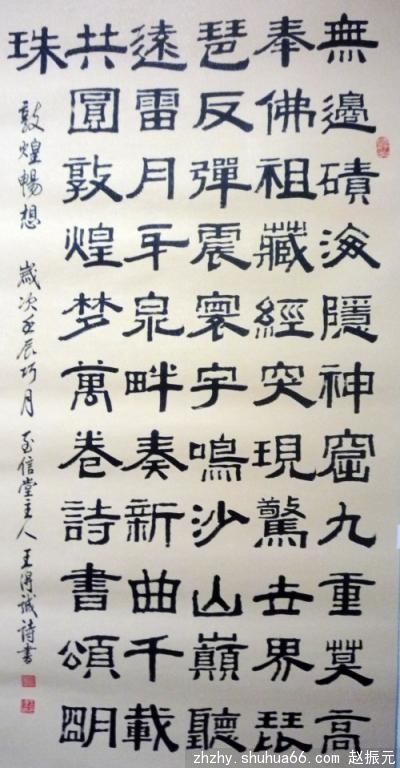 無邊磧海隱神窟九重莫高
奉佛祖藏經突現驚世界琵
琶反彈震寰宇鳴沙山巔聽
遠雷月牙泉畔奏新曲千載
共圓敦煌梦萬卷詩書頌明
珠
敦煌暢想 歲次壬辰巧月 至信堂主人王得誠詩書
zhzhy.shuhua66.com 赵振元